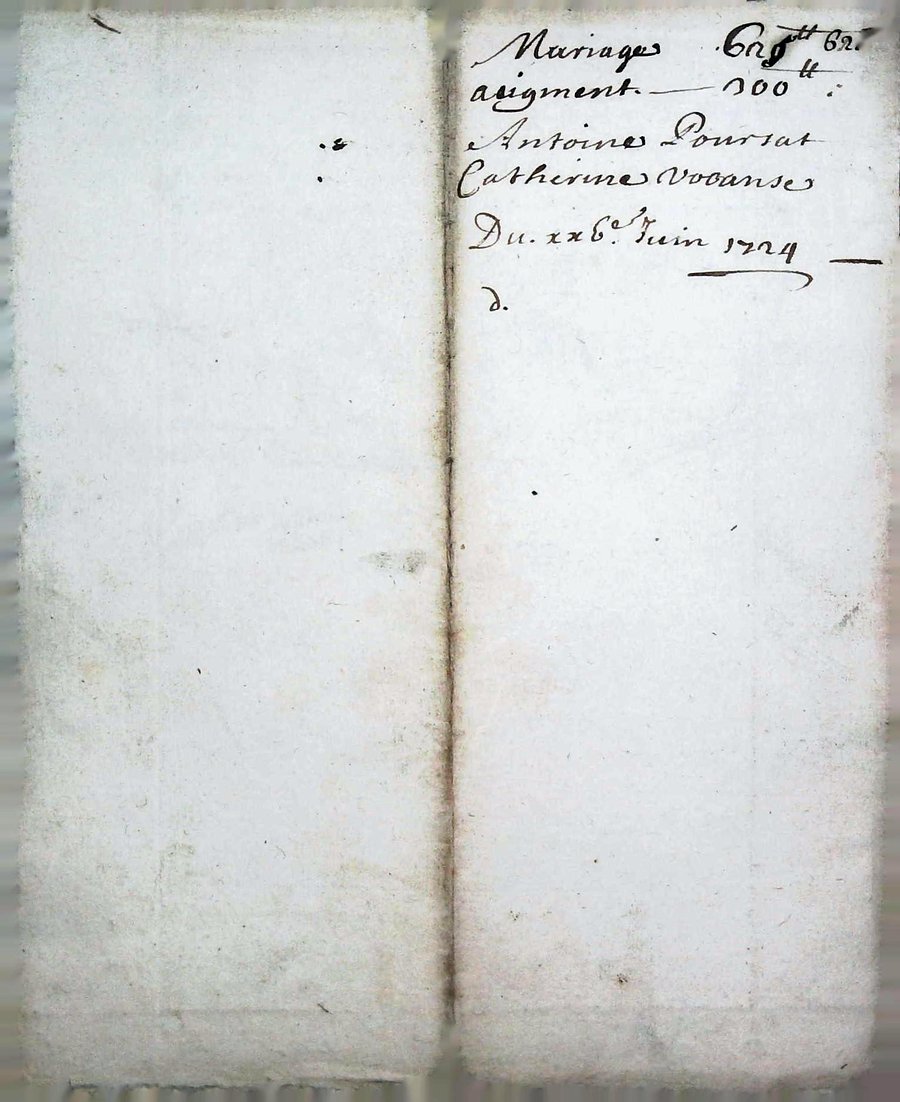 Mariage 625ᵗᵗ 62.
augment. — 300ᵗᵗ :
Antoine Poursat
Catherine Vovanse
Du. xx6e. Juin 1724 —
d.